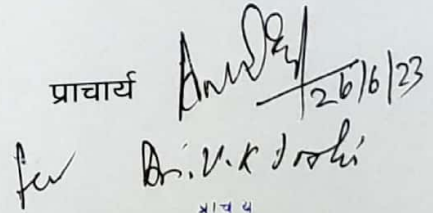 प्राचार्य 26/6/23
for Dr. V.K Joshi
प्राचार्य